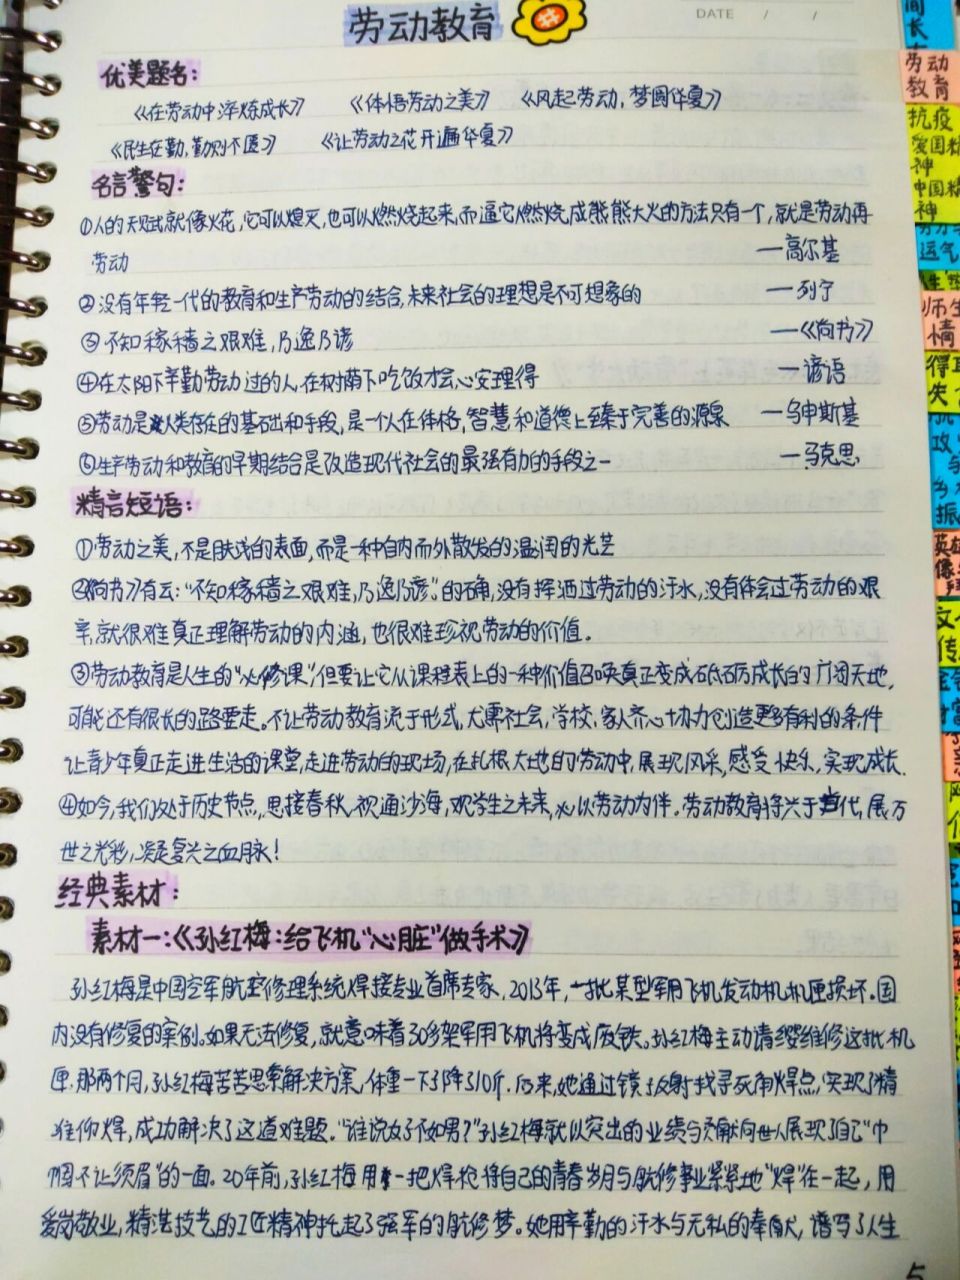 劳动教育
DATE / /
优美题名:
《在劳动中淬炼成长》 《体悟劳动之美》 《风起劳动,梦圆华夏》
《民生在勤,勤则不匮》 《让劳动之花开遍华夏》
名言警句:
①人的天赋就像火花,它可以熄灭,也可以燃烧起来,而逼它燃烧成熊熊大火的方法只有一个,就是劳动再
劳动 —高尔基
②没有年轻一代的教育和生产劳动的结合,未来社会的理想是不可想象的 —列宁
③不知稼穑之艰难,乃逸乃谚 —《尚书》
④在太阳下辛勤劳动过的人,在树荫下吃饭才会心安理得 —谚语
⑤劳动是人类存在的基础和手段,是一个人在体格,智慧和道德上臻于完善的源泉 —乌申斯基
⑥生产劳动和教育的早期结合是改造现代社会的最强有力的手段之一 —马克思
精言短语:
①劳动之美,不是肤浅的表面,而是一种自内而外散发的温润的光芒
②《尚书》有云:“不知稼穑之艰难,乃逸乃谚。”的确,没有挥洒过劳动的汗水,没有体会过劳动的艰
辛,就很难真正理解劳动的内涵,也很难珍视劳动的价值。
③劳动教育是人生的“必修课”,但要让它从课程表上的一种价值召唤真正变成砥砺成长的广阔天地,
可能还有很长的路要走。不让劳动教育流于形式,尤需社会,学校,家人齐心协力创造更多有利的条件
让青少年真正走进生活的课堂,走进劳动的现场,在扎根大地的劳动中,展现风采,感受快乐,实现成长.
④如今,我们处于历史节点,思接春秋,视通沙海,观学生之未来,必以劳动为伴。劳动教育将兴于当代,展万
世之光彩,凝是复兴之血脉!
经典素材:
素材一:《孙红梅:给飞机“心脏”做手术》
孙红梅是中国空军航空修理系统焊接专业首席专家,2013年,一批某型军用飞机发动机机匣损坏.国
内没有修复的案例。如果无法修复,就意味着30多架军用飞机将变成废铁。孙红梅主动请缨维修这批机
匣.那两个月,孙红梅苦苦思索解决方案,体重一下子降了10斤.后来,她通过镜子反射找寻死角焊点,实现了精
准仰焊,成功解决了这道难题.“谁说女子不如男?”孙红梅就以突出的业绩与贡献向世人展现了自己“巾
帼不让须眉”的一面.20年前,孙红梅用一把焊枪将自己的青春岁月与航修事业紧紧地“焊”在一起,用
爱岗敬业,精湛技艺的工匠精神托起了强军的航修梦。她用辛勤的汗水与无私的奉献,谱写了人生
5
劳动
教育
抗疫
爱国精
神
中国精
神
运气
师生
情